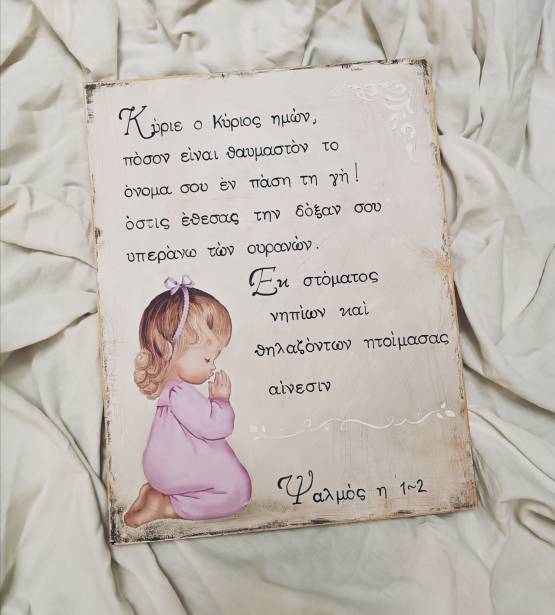 Κύριε ο Κύριος ημών,
πόσον είναι θαυμαστόν το
όνομα σου έν πάση τη γή!
όστις έθεσας την δόξαν σου
υπεράνω τών ουρανών.
Εκ στόματος
νηπίων καί
θηλαζόντων ητοίμασας
αίνεσιν
Ψαλμός η 1~2